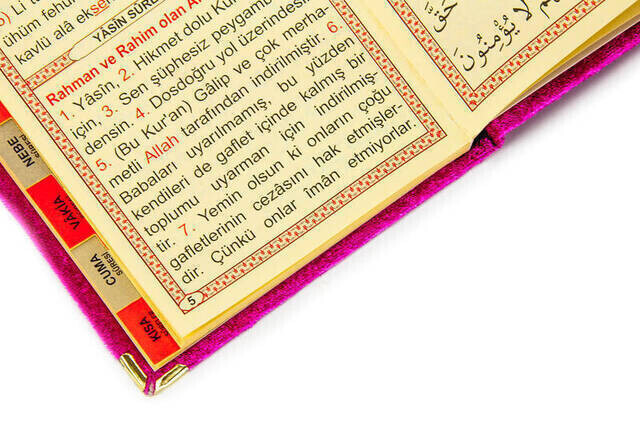 ühüm fehüm
kavlü alâ ekseri
YÂSÎN SÛR
Rahman ve Rahim olan
1. Yâsîn. 2. Hikmet dolu
için, 3. Sen şüphesiz peygam
densin. 4. Dosdoğru yol üzerindesi
5. (Bu Kur'an) Gâlip ve çok merha-
metli Allah tarafından indirilmiştir. 6.
Babaları uyarılmamış, bu yüzden
kendileri de gaflet içinde kalmış bir
toplumu uyarman için indirilmiş-
tir. 7. Yemin olsun ki onların çoğu
gafletlerinin cezasını hak etmişler-
dir. Çünkü onlar îmân etmiyorlar.
5
NEBE
SÛRESİ
VÂKIA
CUMA
SÛRESİ
KISA
SÛRELER
لَا يُؤْمِنُونَ